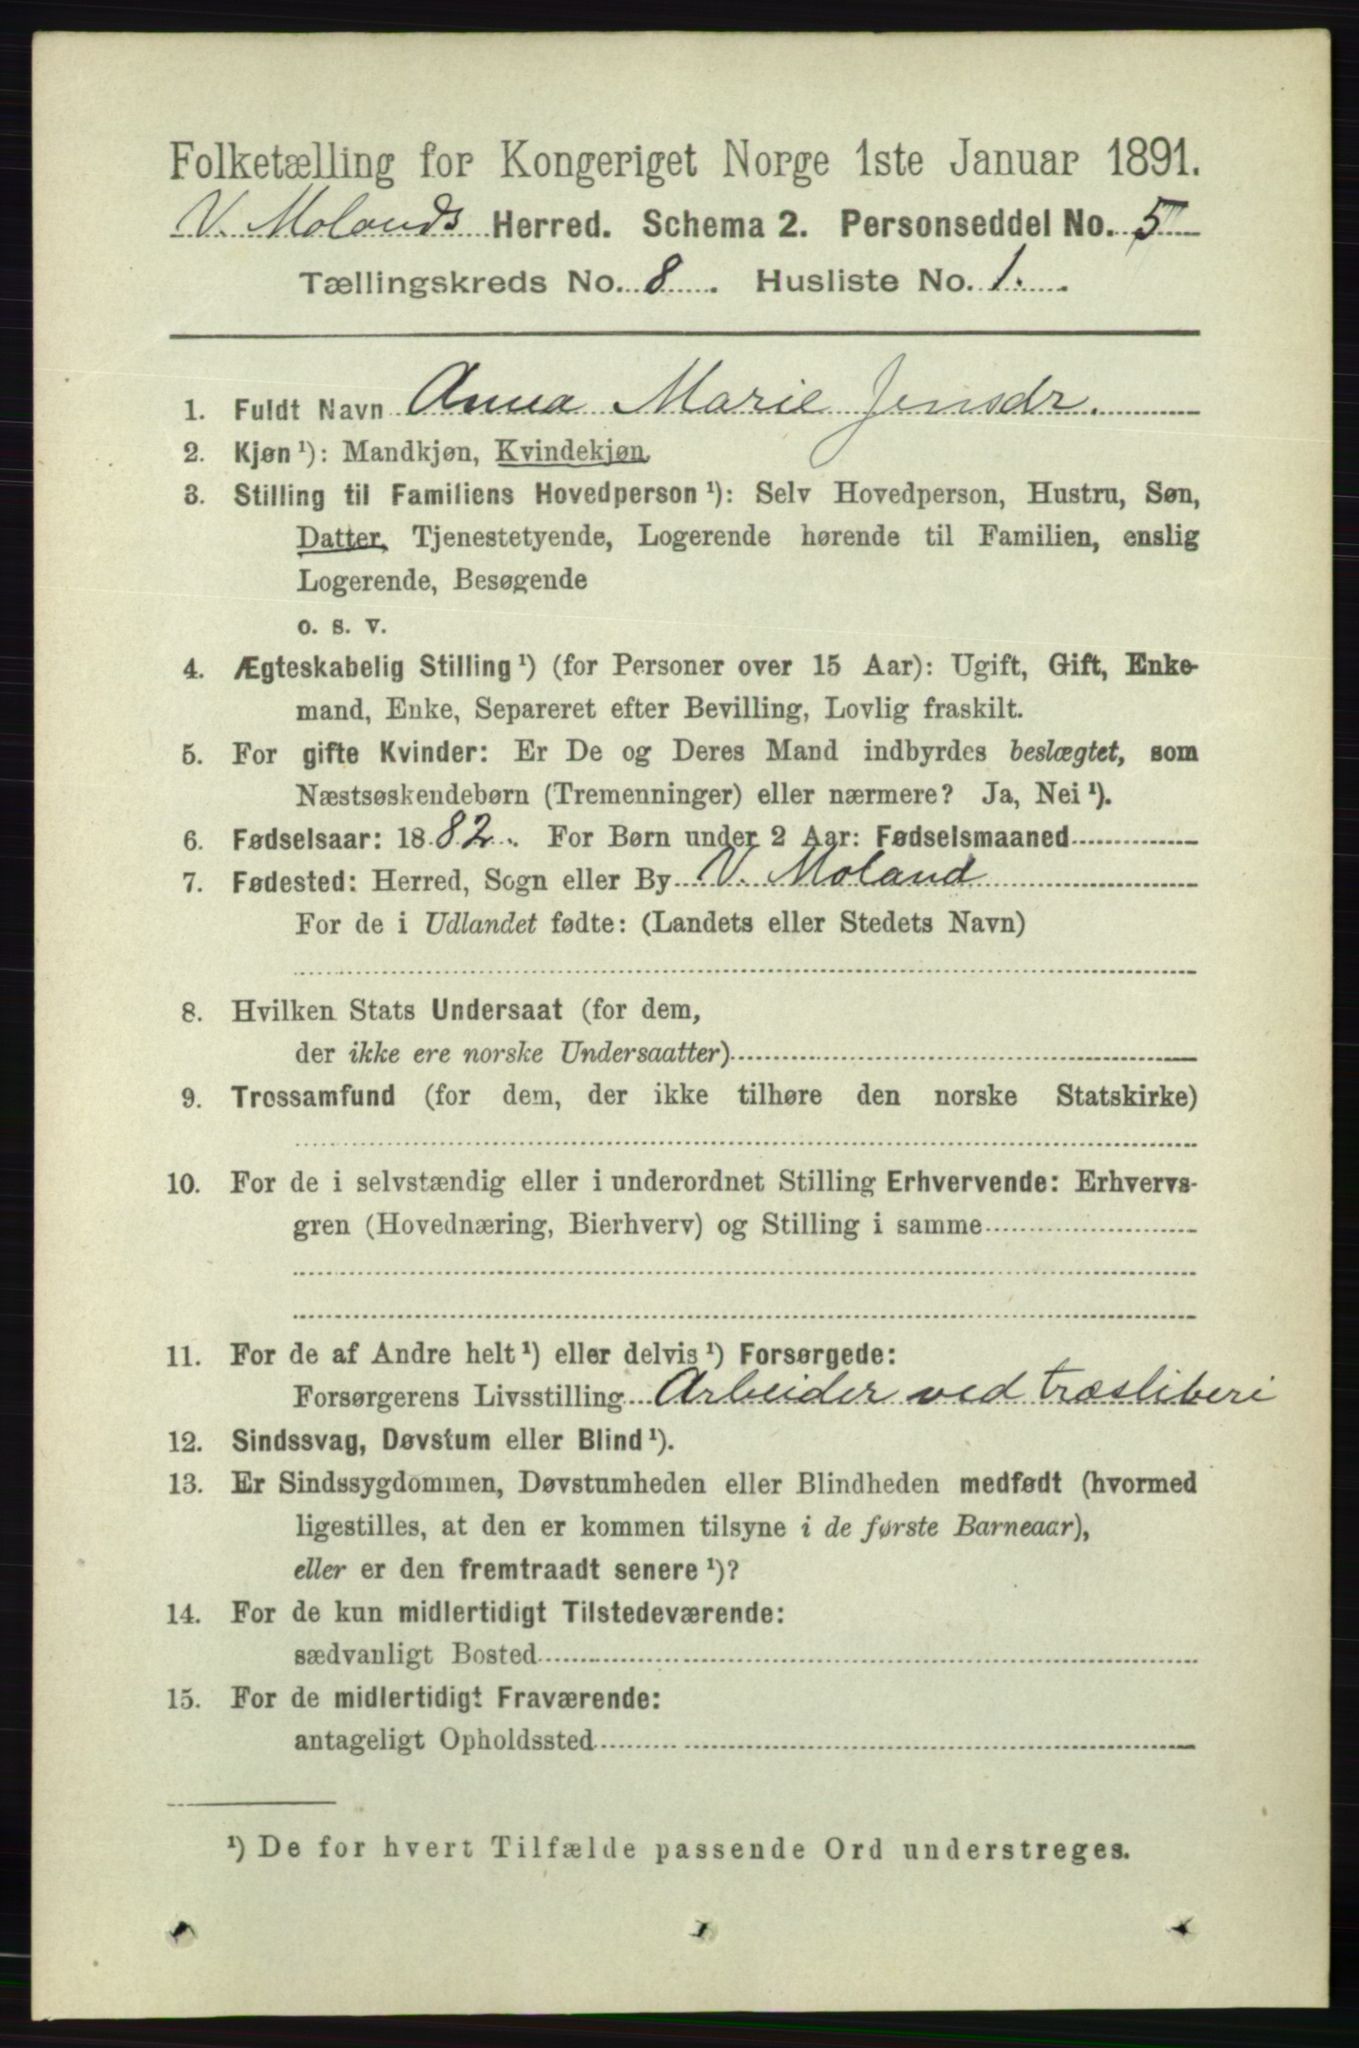 Folketælling for Kongeriget Norge 1ste Januar 1891.
V. Molands Herred. Schema 2. Personseddel No. 5
Tællingskreds No. 8. Husliste No. 1.
1. Fuldt Navn Anna Marie Jensdr.
2. Kjøn ¹): Mandkjøn, Kvindekjøn
3. Stilling til Familiens Hovedperson ¹): Selv Hovedperson, Hustru, Søn,
Datter, Tjenestetyende, Logerende hørende til Familien, enslig
Logerende, Besøgende
o. s. v.
4. Ægteskabelig Stilling ¹) (for Personer over 15 Aar): Ugift, Gift, Enke-
mand, Enke, Separeret efter Bevilling, Lovlig fraskilt.
5. For gifte Kvinder: Er De og Deres Mand indbyrdes beslægtet, som
Næstsøskendebørn (Tremenninger) eller nærmere? Ja, Nei ¹).
6. Fødselsaar: 1882. For Børn under 2 Aar: Fødselsmaaned
7. Fødested: Herred, Sogn eller By V. Moland
For de i Udlandet fødte: (Landets eller Stedets Navn)
8. Hvilken Stats Undersaat (for dem,
der ikke ere norske Undersaatter)
9. Trossamfund (for dem, der ikke tilhøre den norske Statskirke)
10. For de i selvstændig eller i underordnet Stilling Erhvervende: Erhvervs-
gren (Hovednæring, Bierhverv) og Stilling i samme
11. For de af Andre helt ¹) eller delvis ¹) Forsørgede:
Forsørgerens Livsstilling Arbeider ved træsliberi
12. Sindssvag, Døvstum eller Blind ¹).
13. Er Sindssygdommen, Døvstumheden eller Blindheden medfødt (hvormed
ligestilles, at den er kommen tilsyne i de første Barneaar),
eller er den fremtraadt senere ¹)?
14. For de kun midlertidigt Tilstedeværende:
sædvanligt Bosted
15. For de midlertidigt Fraværende:
antageligt Opholdssted
¹) De for hvert Tilfælde passende Ord understreges.